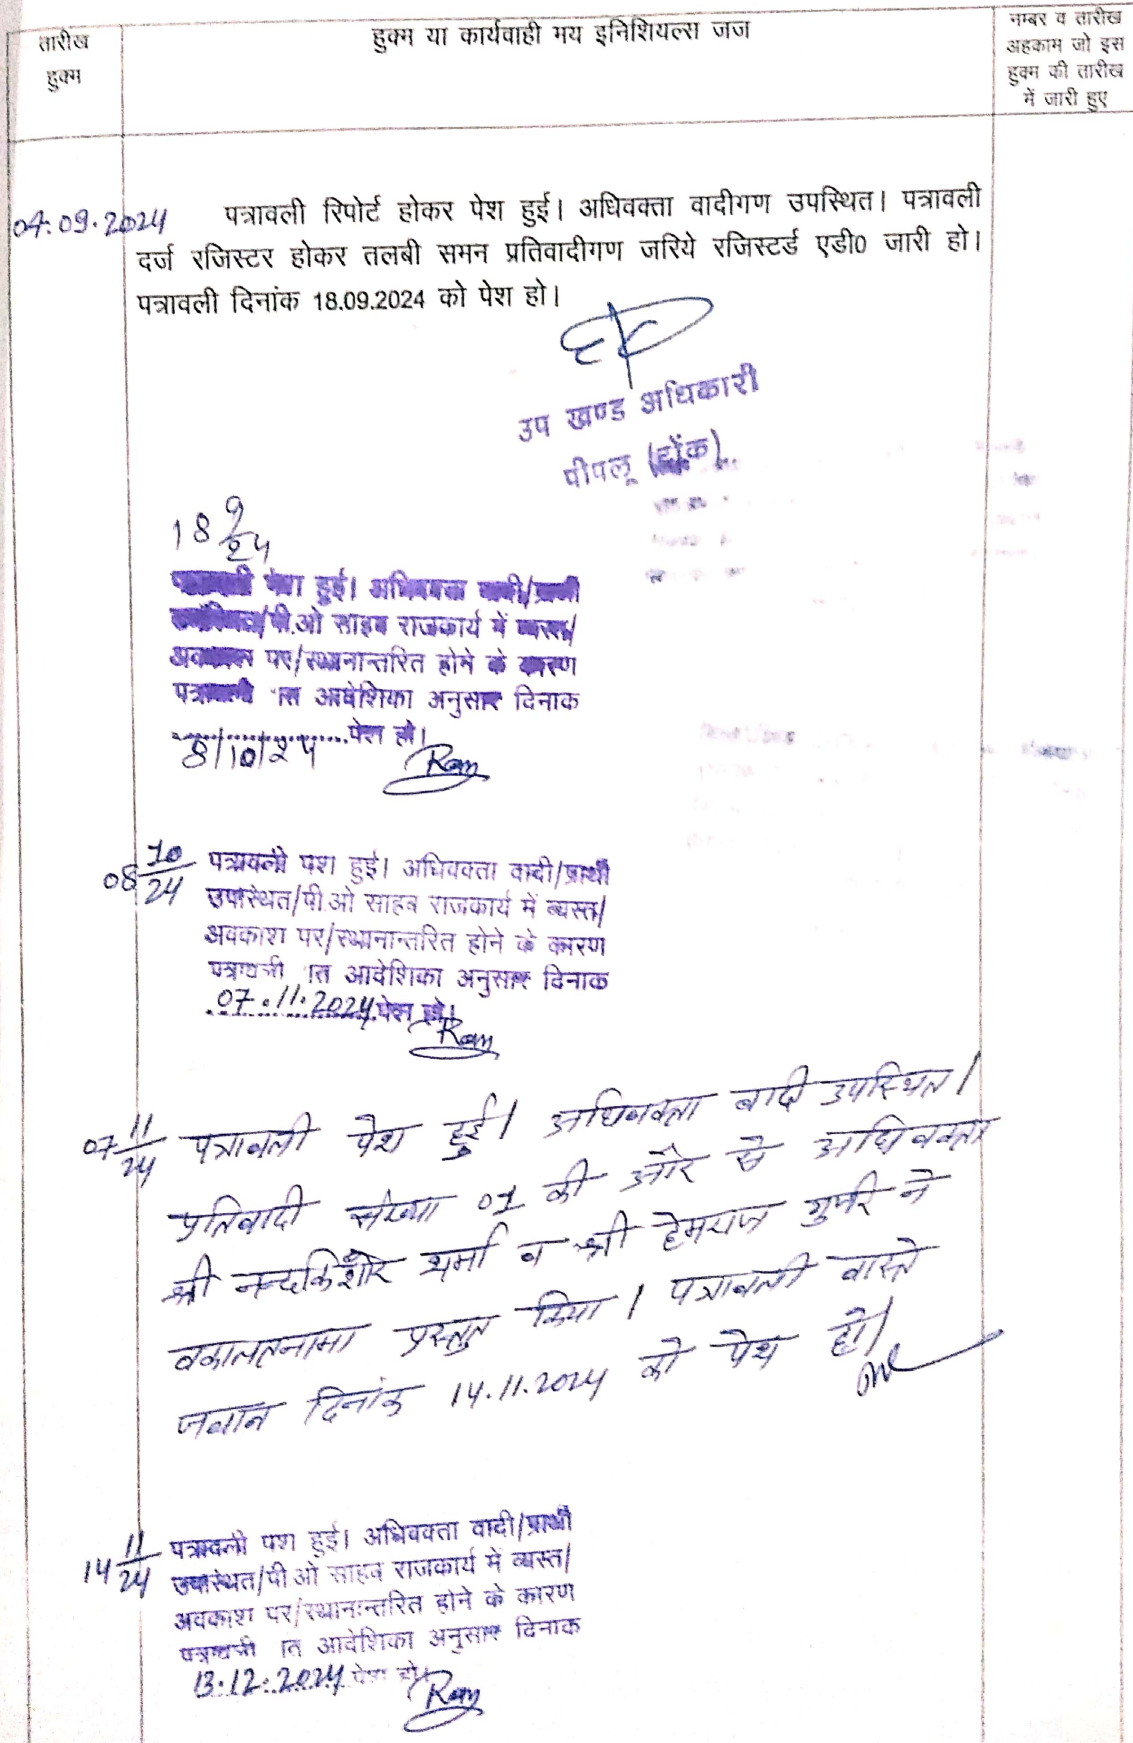 तारीख
हुक्म
हुक्म या कार्यवाही मय इनिशियल्स जज
नम्बर व तारीख
अहकाम जो इस
हुक्म की तारीख
में जारी हुए
04.09.2024
पत्रावली रिपोर्ट होकर पेश हुई। अधिवक्ता वादीगण उपस्थित। पत्रावली
दर्ज रजिस्टर होकर तलबी समन प्रतिवादीगण जरिये रजिस्टर्ड एडी0 जारी हो।
पत्रावली दिनांक 18.09.2024 को पेश हो।
उप खण्ड अधिकारी
पीपलू (टोंक)
18 9/24
पत्रावली पेश हुई। अधिवक्ता वादी/प्रार्थी
उपस्थित/पी.ओ साहब राजकार्य में व्यस्त/
अवकाश पर/स्थानान्तरित होने के कारण
पत्रावली आदेशिका अनुसार दिनाक
पेश हो।
8/10/24
Ram
08 10/24
पत्रावली पेश हुई। अधिवक्ता वादी/प्रार्थी
उपस्थित/पी.ओ साहब राजकार्य में व्यस्त/
अवकाश पर/स्थानान्तरित होने के कारण
पत्रावली आदेशिका अनुसार दिनाक
07.11.2024 पेश हो।
Ram
07 11/24
पत्रावली पेश हुई। अधिवक्ता वादी उपस्थित।
प्रतिवादी संख्या 01 की और से अधिवक्ता
श्री नन्दकिशोर शर्मा व श्री हेमराज गुर्जर ने
वकालतनामा प्रस्तुत किया। पत्रावली वास्ते
जवाब दिनांक 14.11.2024 को पेश हो।
14 11/24
पत्रावली पेश हुई। अधिवक्ता वादी/प्रार्थी
उपस्थित/पी.ओ साहब राजकार्य में व्यस्त/
अवकाश पर/स्थानान्तरित होने के कारण
पत्रावली आदेशिका अनुसार दिनाक
13.12.2024 पेश हो।
Ram